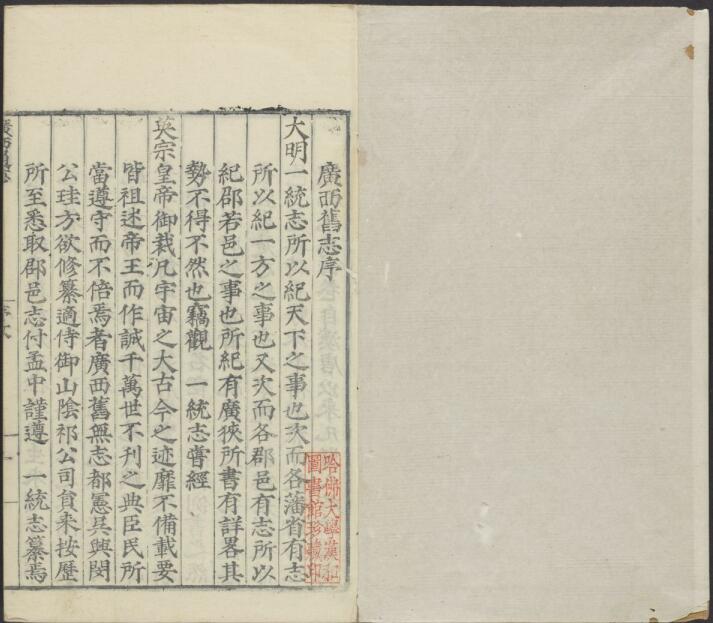 廣西舊志序
大明一統志所以紀天下之事也次而各藩省有志
所以紀一方之事也又次而各郡邑有志所以
紀郡若邑之事也所紀有廣狹所書有詳畧其
勢不得不然也竊觀 一統志嘗經
英宗皇帝御裁凡宇宙之大古今之迹靡不備載要
皆祖述帝王而作誠千萬世不刊之典臣民所
當遵守而不倍焉者廣西舊無志都憲吳興閔
公珪方欲修纂適侍御山陰祁公司員来按歷
所至悉取郡邑志付孟中謹遵 一統志纂焉
哈佛大學漢和
圖書館珍藏印